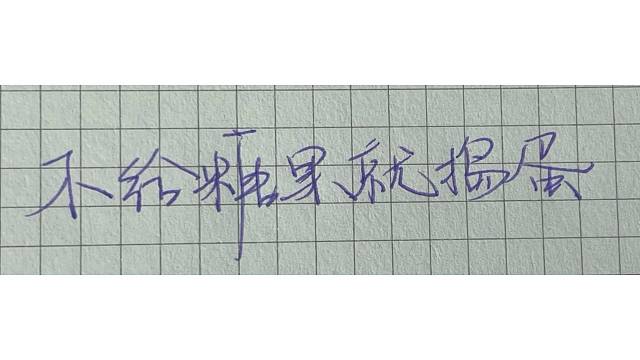 不给糖果就捣蛋